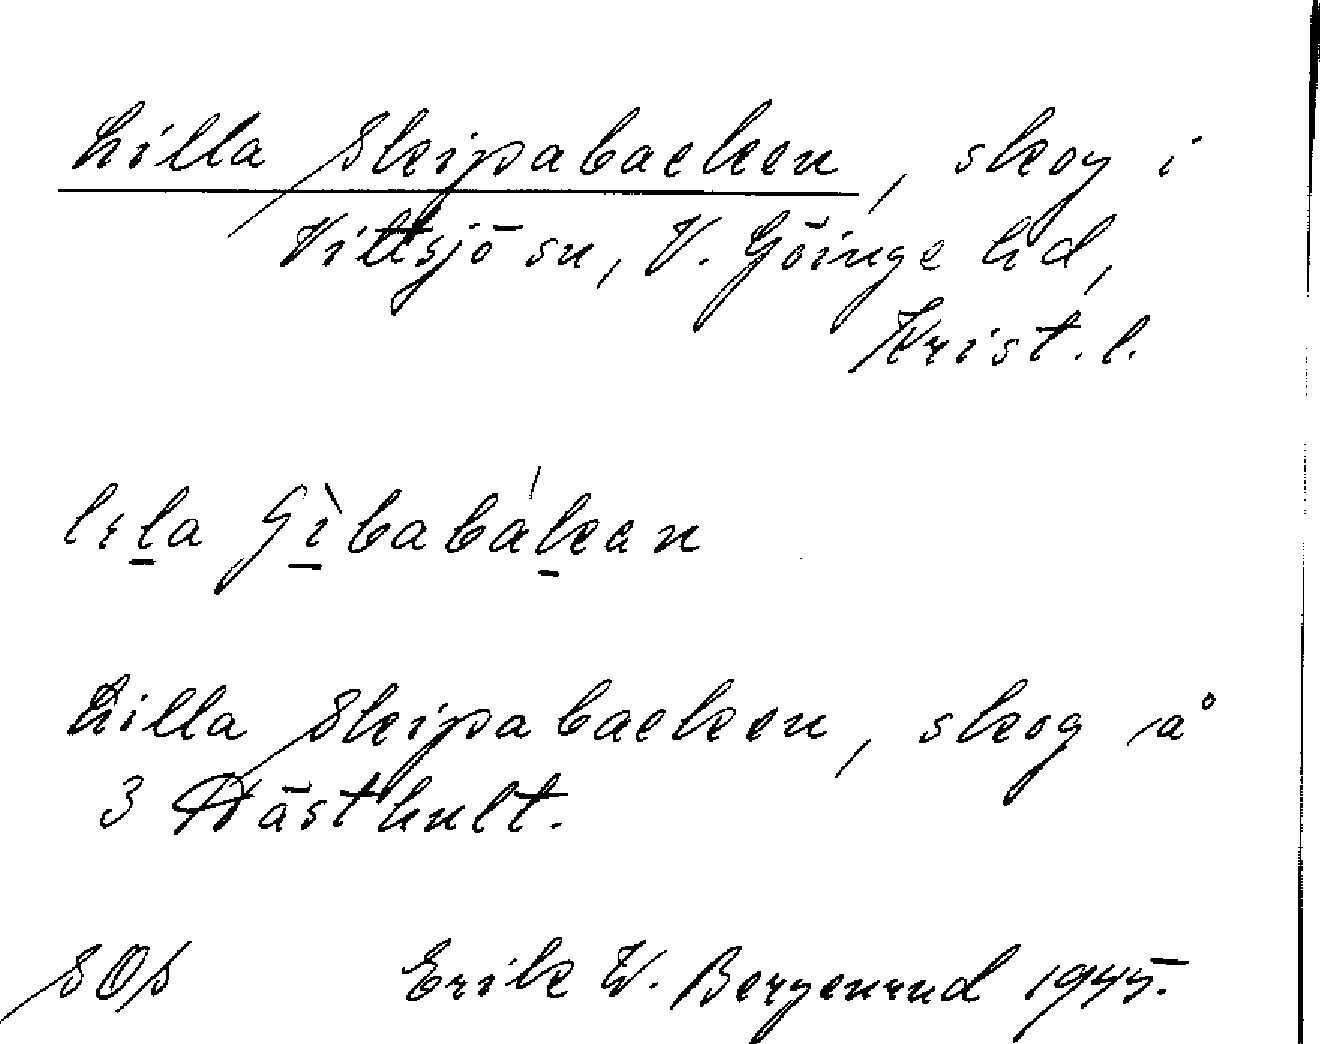 Lilla Skipabacken, skog i
Vittsjö sn, V. Göinge hd,
Krist. l.
lɩla Jìbabákan
Lilla Skipabacken, skog å
3 Hästhult.
SOS Erik W. Bergenrud 1945.